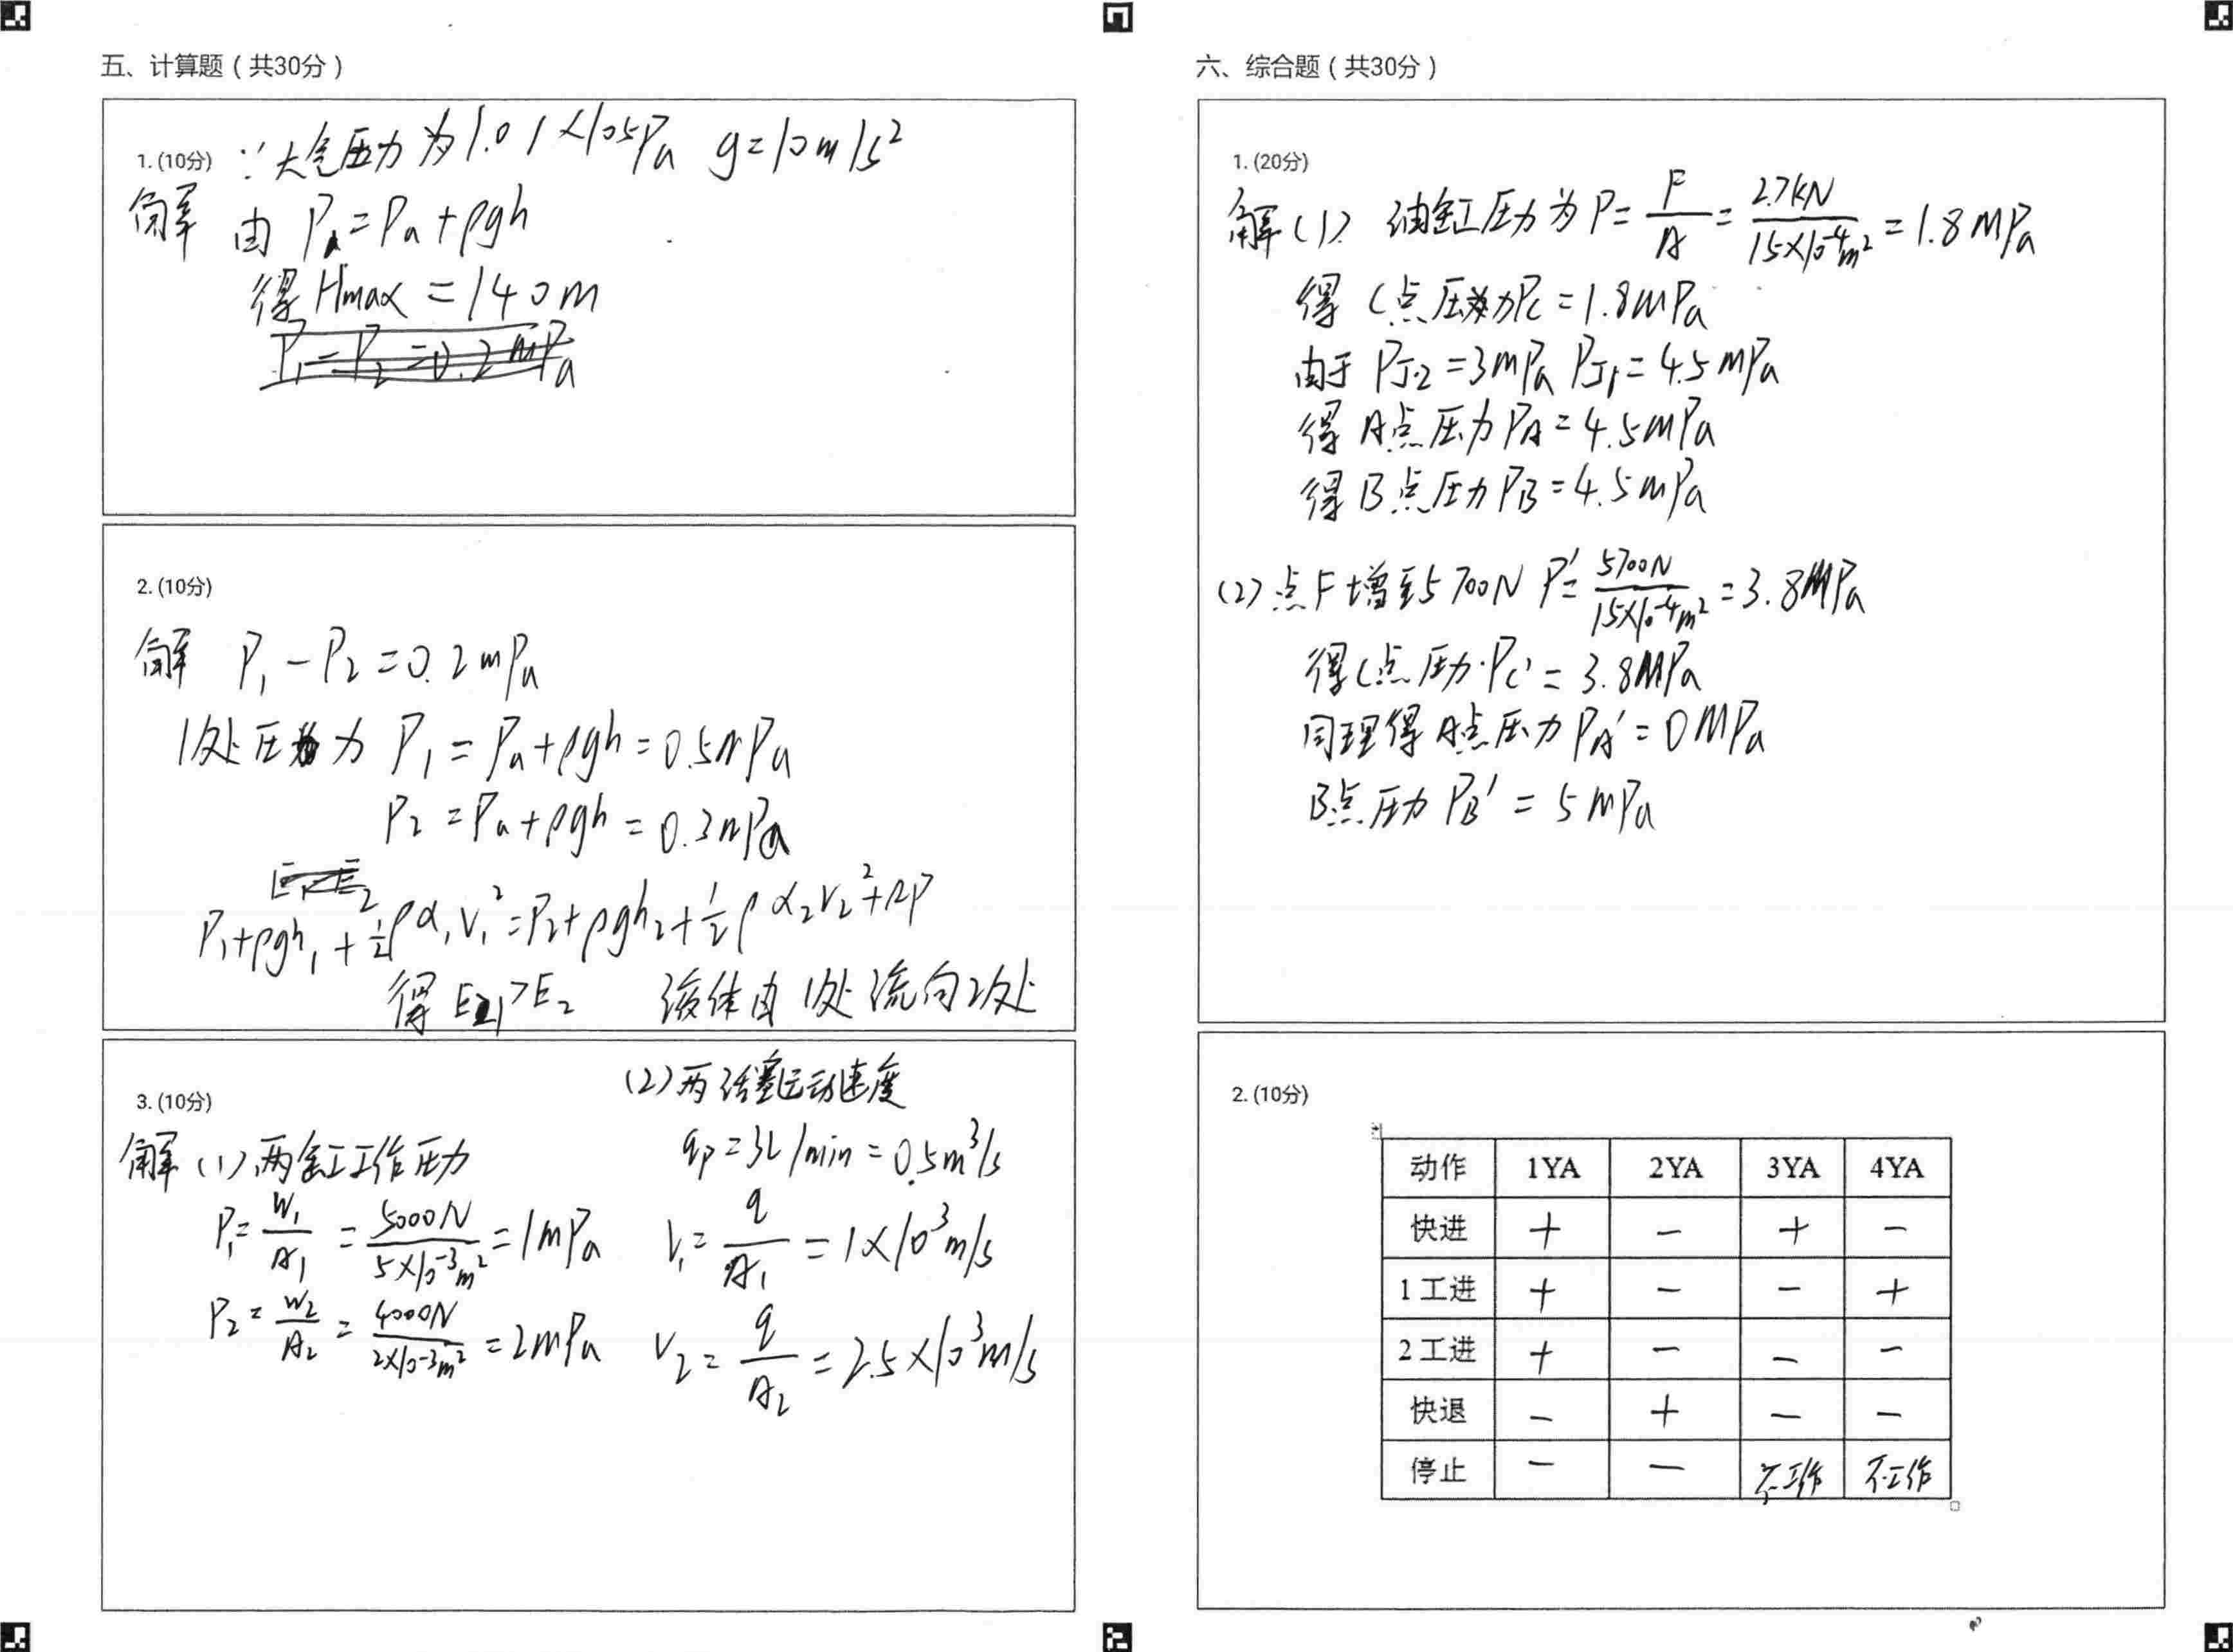 五、计算题（共30分）
1. (10分) ∵大气压力为1.01×105Pa g=10m/s²
解 由 P=Pa+ρgh
得Hmax=140m
P1=P2=0.2mPa
2. (10分)
解 P1-P2=0.2mPa
1处压力为 P1=Pa+ρgh=0.5mPa
P2=Pa+ρgh=0.3mPa
P1+ρgh1+½ρα1v1²=P2+ρgh2+½ρα2v2²+ΔP
得E1>E2 液体由1处流向2处
3. (10分)
解(1)两缸工作压力
P1=W1/A1=5000N/5×10⁻³m²=1mPa
P2=W2/A2=4000N/2×10⁻³m²=2mPa
(2)两活塞运动速度
qp=3L/min=0.5m³/s
V1=q/A1=1×10³m/s
V2=q/A2=2.5×10³m/s
六、综合题（共30分）
1. (20分)
解(1) 油缸压力为P=F/A=2.7kN/15×10⁻⁴m²=1.8MPa
得C点压力PC=1.8mPa
由于PJ2=3mPa PJ1=4.5mPa
得A点压力PA=4.5mPa
得B点压力PB=4.5mPa
(2)点F增到5700N P'=5700N/15×10⁻⁴m²=3.8MPa
得C点压力PC'=3.8MPa
同理得A点压力PA'=0MPa
B点压力PB'=5mPa
2. (10分)
动作 1YA 2YA 3YA 4YA
快进 + - + -
1工进 + - - +
2工进 + - - -
快退 - + - -
停止 - - 不工作 不工作